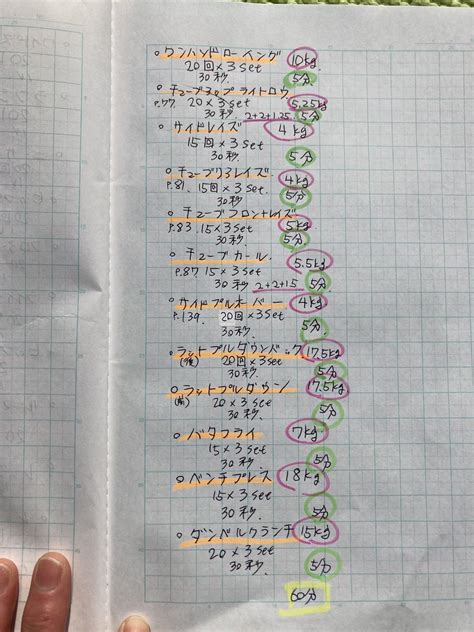 ○ワンハンドローイング 10kg
20回×3set 5分
30秒.
○チューブアップライトロウ
P.77 20×3set 5.25kg
30秒. 2+2+1.25 5分
○サイドレイズ 4kg
15回×3set
30秒 5分
○チューブリアレイズ 4kg
P.81. 15回×3set 5分
30秒
○チューブフロントレイズ
P.83 15×3set 5kg
30秒 5分
○チューブカール 5.5kg
P.87 15×3set
30秒 2+2+1.5 5分
○サイドプルオーバー 4kg
P.139. 20回×3set
30秒. 5分
○ラットプルダウンバック 17.5kg
(後) 20回×3set
30秒. 5分
○ラットプルダウン 17.5kg
(前) 20×3set
30秒. 5分
○バタフライ 7kg
15×3set
30秒. 5分
○ベンチプレス 18kg
15×3set
30秒. 5分
○ダンベルクランチ 15kg
20×3set
30秒. 5分
60分